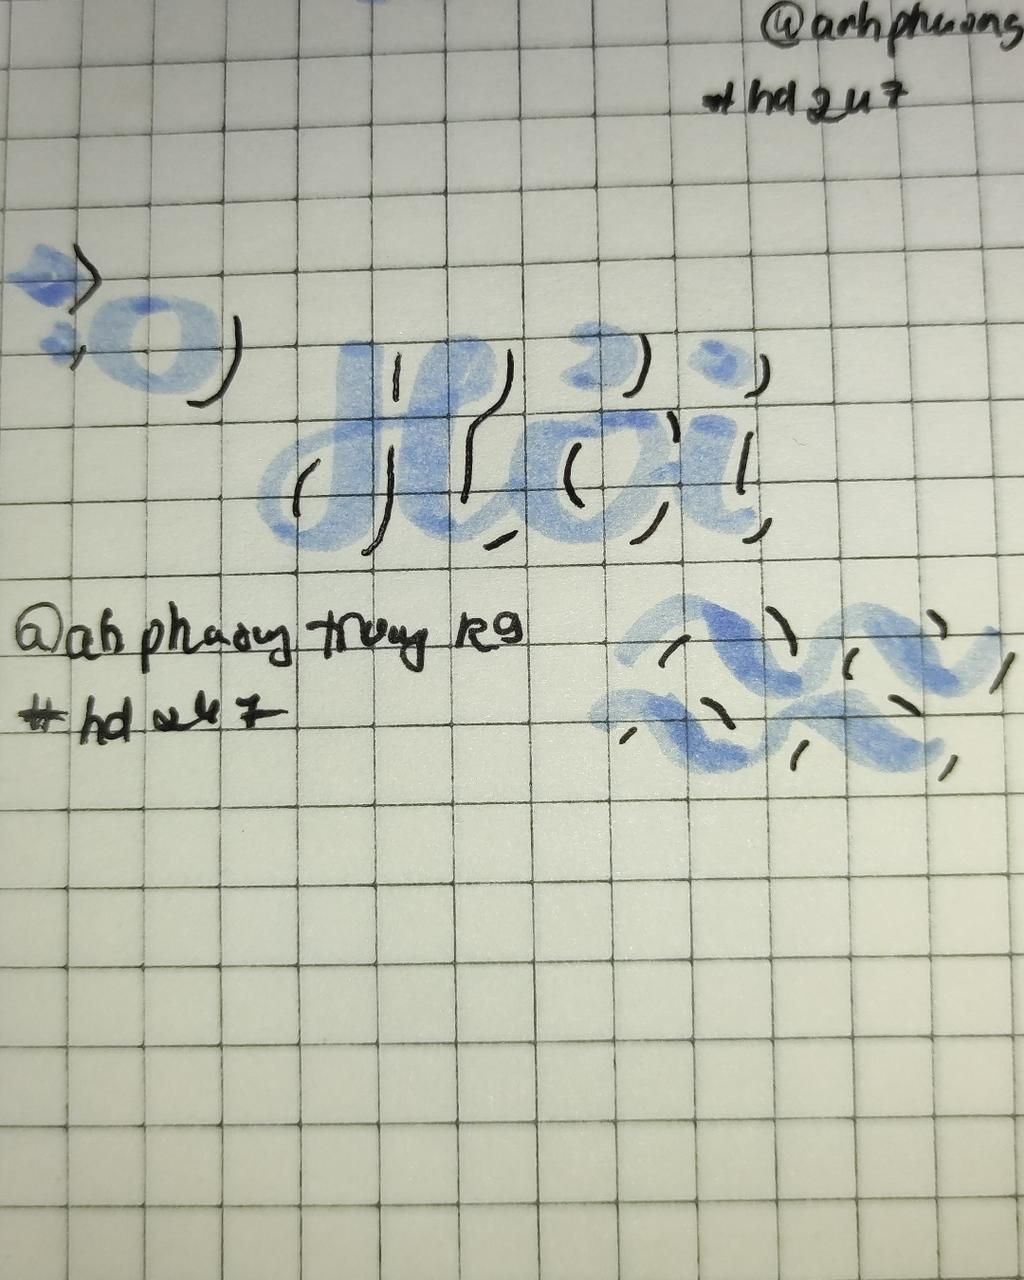 @anhphuong
#hd247
Hỏi
@ah phaong trung k9
#hd247